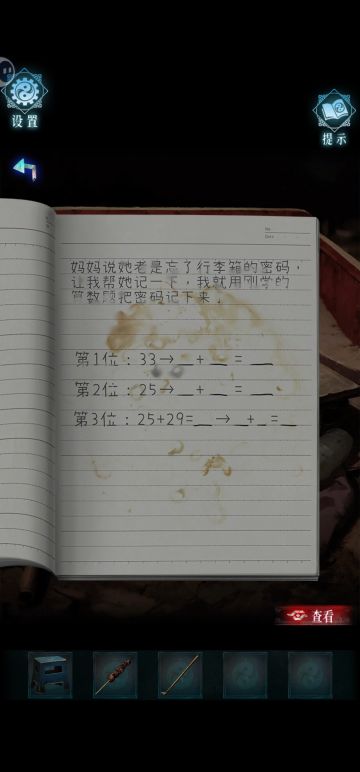 设置
提示
No
Date
妈妈说她老是忘了行李箱的密码，
让我帮她记一下，我就用刚学的
算数题把密码记下来，
第1位：33→_+_=_
第2位：25→_+_=_
第3位：25+29=_→_+_=_
查看